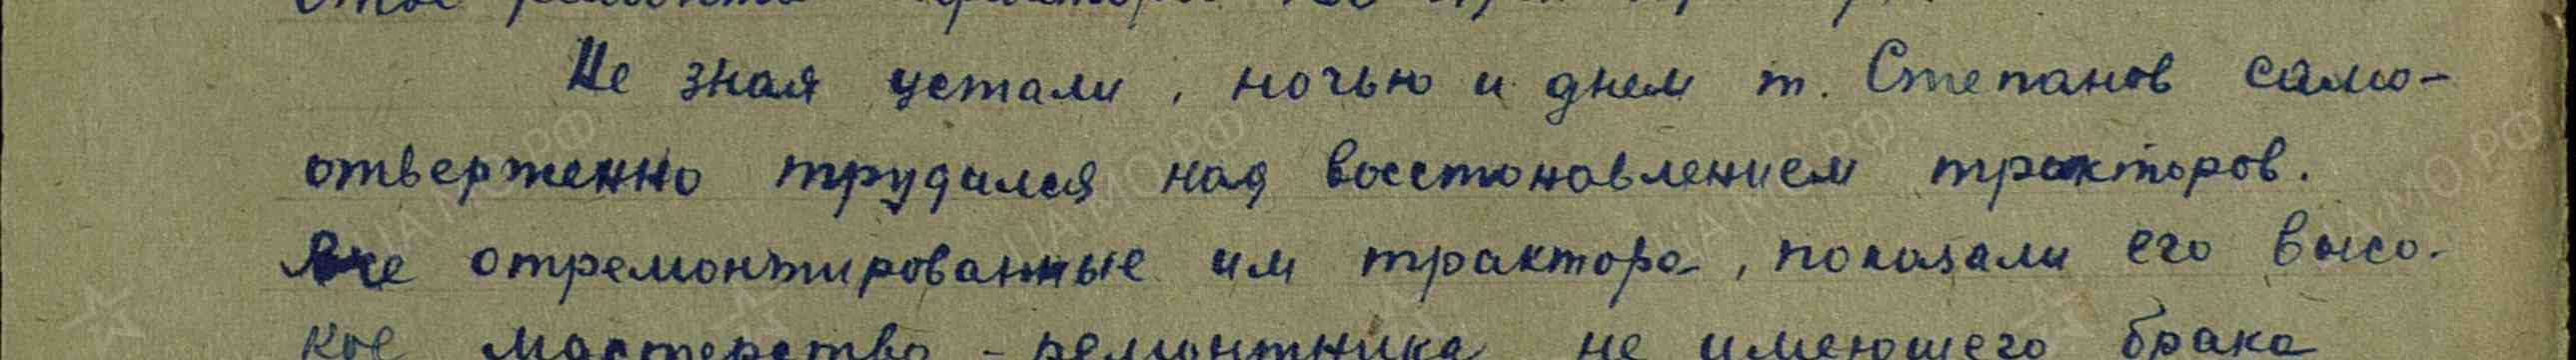 Не зная устали, ночью и днем т. Степанов само-
отверженно трудился над восстановлением тракторов.
Все отремонтированные им трактора, показали его высо-
кое мастерство - ремонтника не имеющего брака